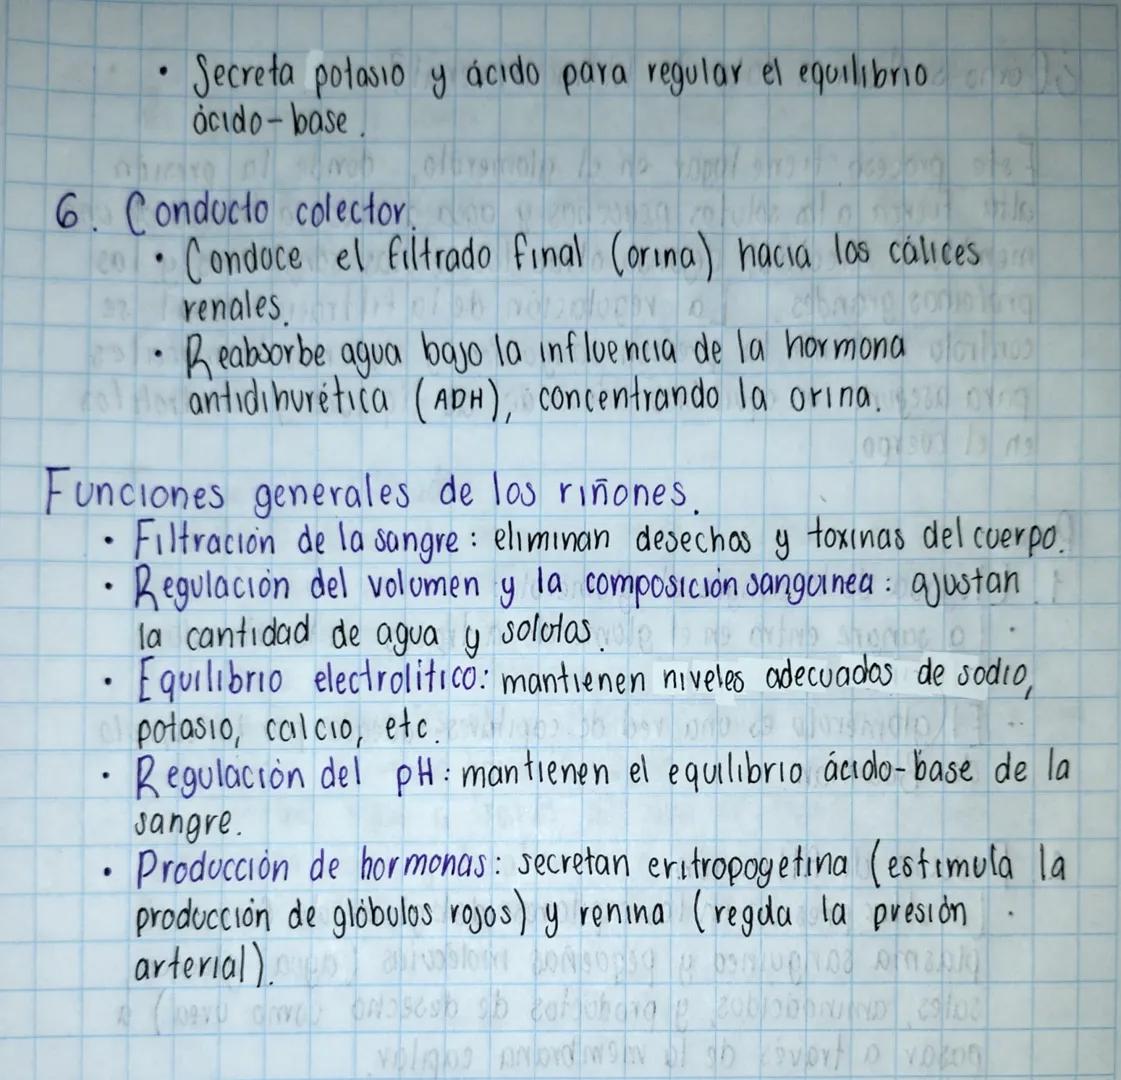 • Secreta potasio y ácido para regular el equilibrio
ácido-base.
6. Conducto colector.
• Conduce el filtrado final (orina) hacia los cálices
renales.
• Reabsorbe agua bajo la influencia de la hormona
antidihurética (ADH), concentrando la orina.
Funciones generales de los riñones.
• Filtración de la sangre: eliminan desechos y toxinas del cuerpo.
• Regulación del volumen y la composición sanguinea: ajustan
la cantidad de agua y solutas.
• Equilibrio electrolítico: mantienen niveles adecuados de sodio,
potasio, calcio, etc.
• Regulación del pH: mantienen el equilibrio ácido-base de la
sangre.
• Producción de hormonas: secretan eritropogetina (estimula la
producción de glóbulos rojos) y renina (regula la presión
arterial).